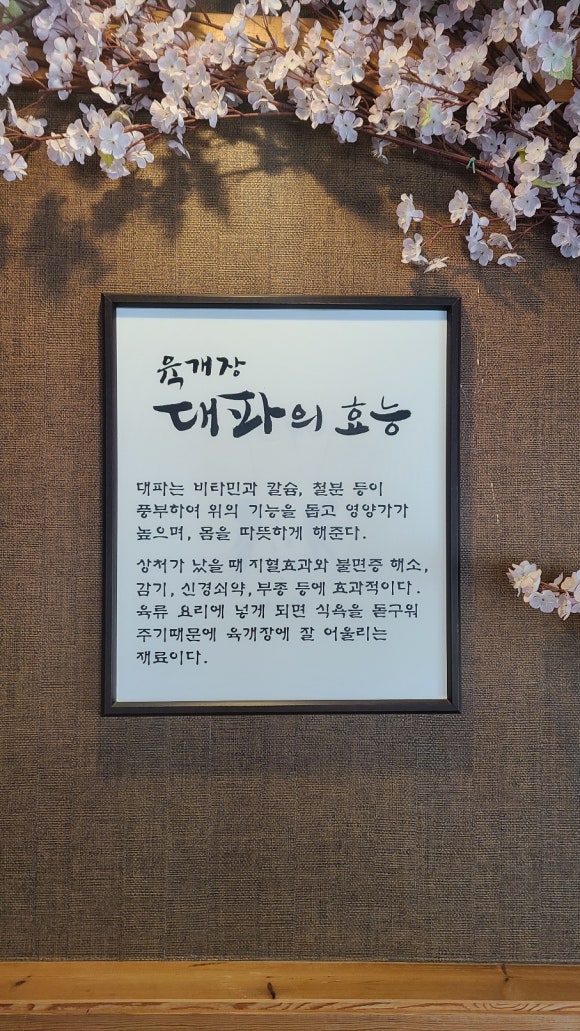 육개장
대파의 효능
대파는 비타민과 칼슘, 철분 등이
풍부하여 위의 기능을 돕고 영양가가
높으며, 몸을 따뜻하게 해준다.
상처가 났을 때 지혈효과와 불면증 해소,
감기, 신경쇠약, 부종 등에 효과적이다.
육류 요리에 넣게 되면 식욕을 돋구워
주기때문에 육개장에 잘 어울리는
재료이다.